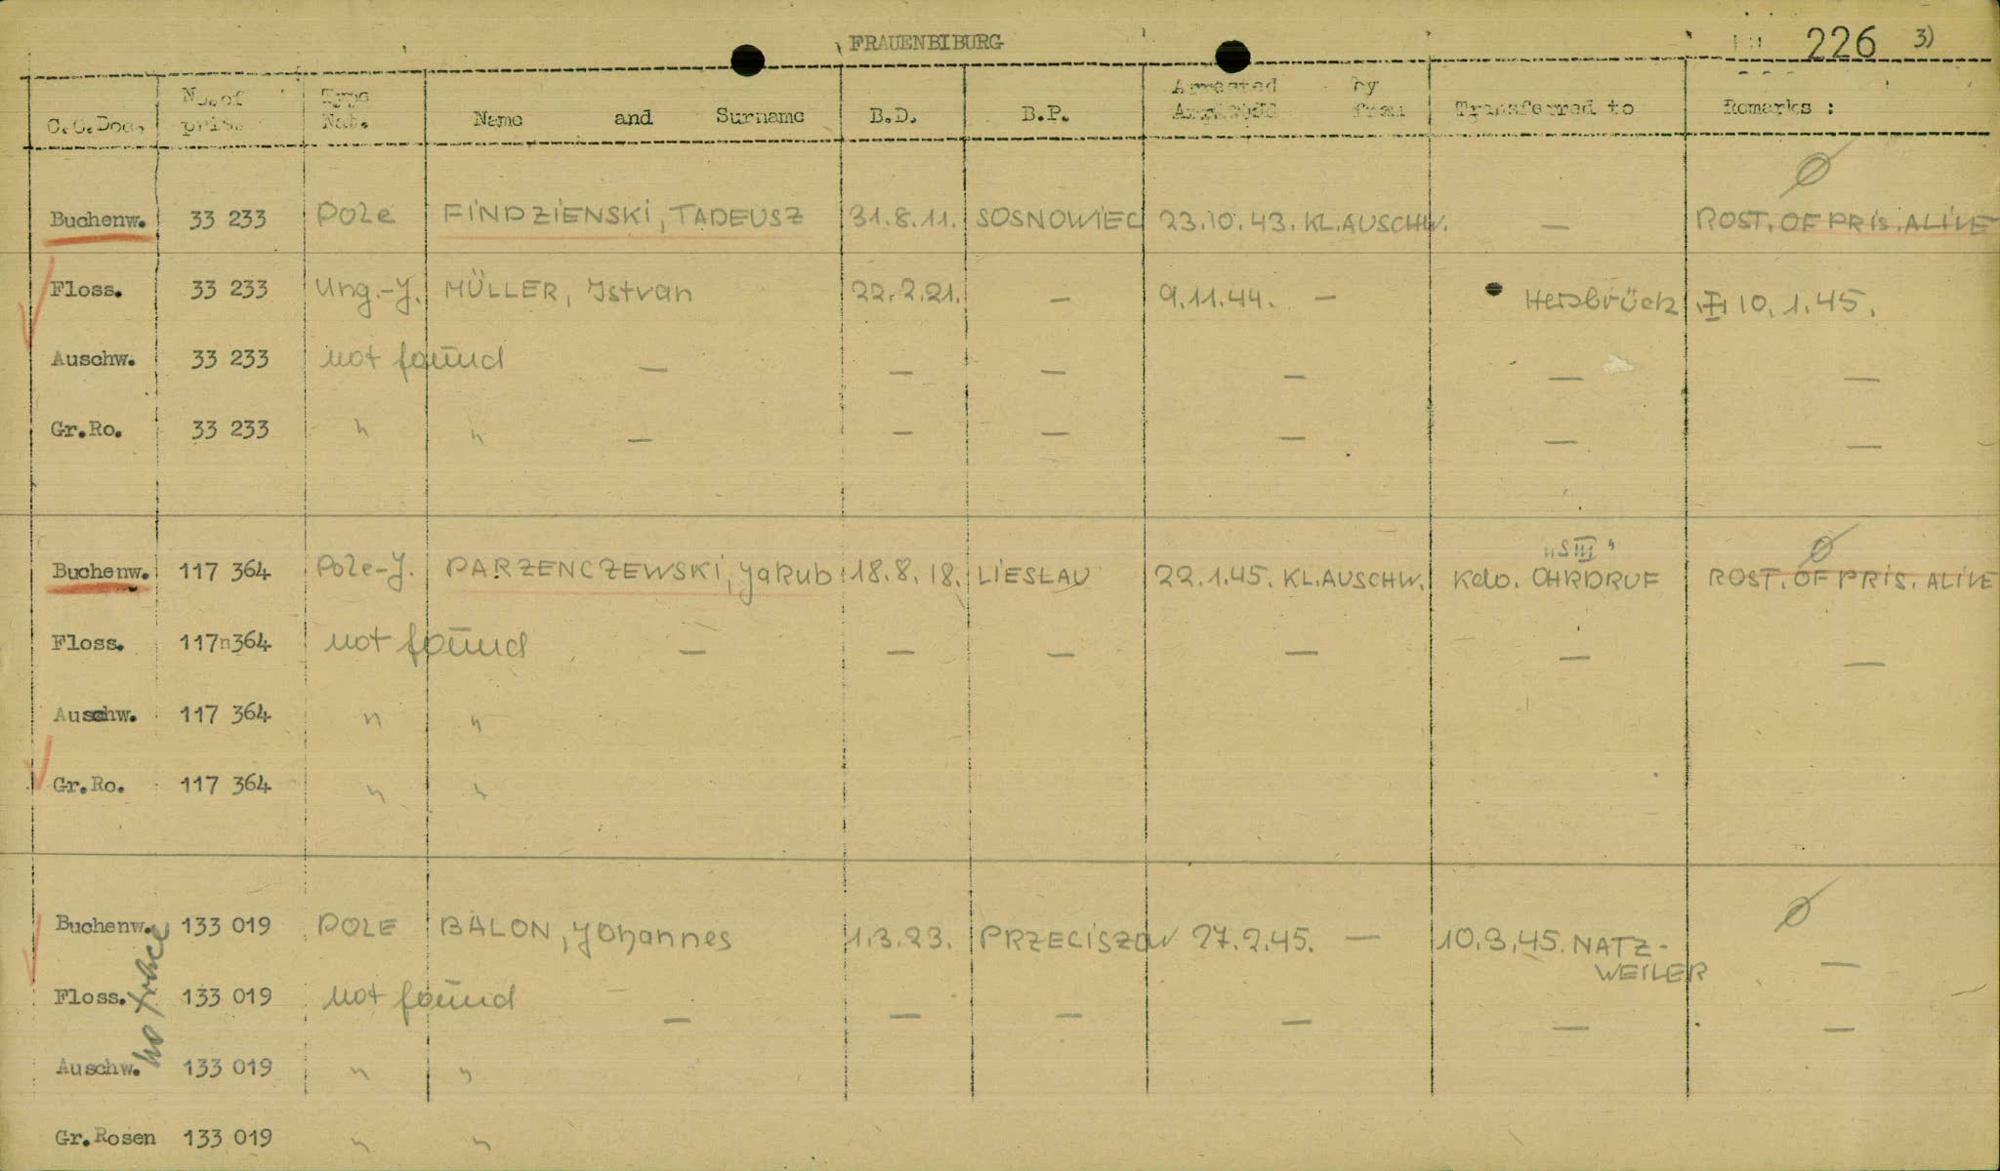 FRAUENBIBURG 226 3)
C.C.Doc. No.of pris. Type Nat. Name and Surname B.D. B.P. Arrested by from Transferred to Remarks :
Ø
Buchenw. 33 233 Pole FINDZIENSKI, TADEUSZ 31.8.11. SOSNOWIEC 23.10.43. KL.AUSCHW. — ROST. OF PRIS. ALIVE
Floss. 33 233 Ung.-J. MÜLLER, Istvan 22.2.21. — 9.11.44. — Hersbrück 10.1.45.
Auschw. 33 233 not found — — — — — —
Gr.Ro. 33 233 " " — — — — — —
"SIII" Ø
Buchenw. 117 364 Pole-J. PARZENCZEWSKI, Jakub 18.8.18. LIESLAU 22.1.45. KL.AUSCHW. Kdo. OHRDRUF ROST. OF PRIS. ALIVE
Floss. 117n364 not found — — — — — —
Auschw. 117 364 " "
Gr.Ro. 117 364 " "
Ø
Buchenw. 133 019 POLE BALON, Johannes 1.3.23. PRZECISZOW 27.2.45. — 10.3.45. NATZ-
WEILER —
no trace
Floss. 133 019 not found — — — — — —
Auschw. 133 019 " "
Gr.Rosen 133 019 " "